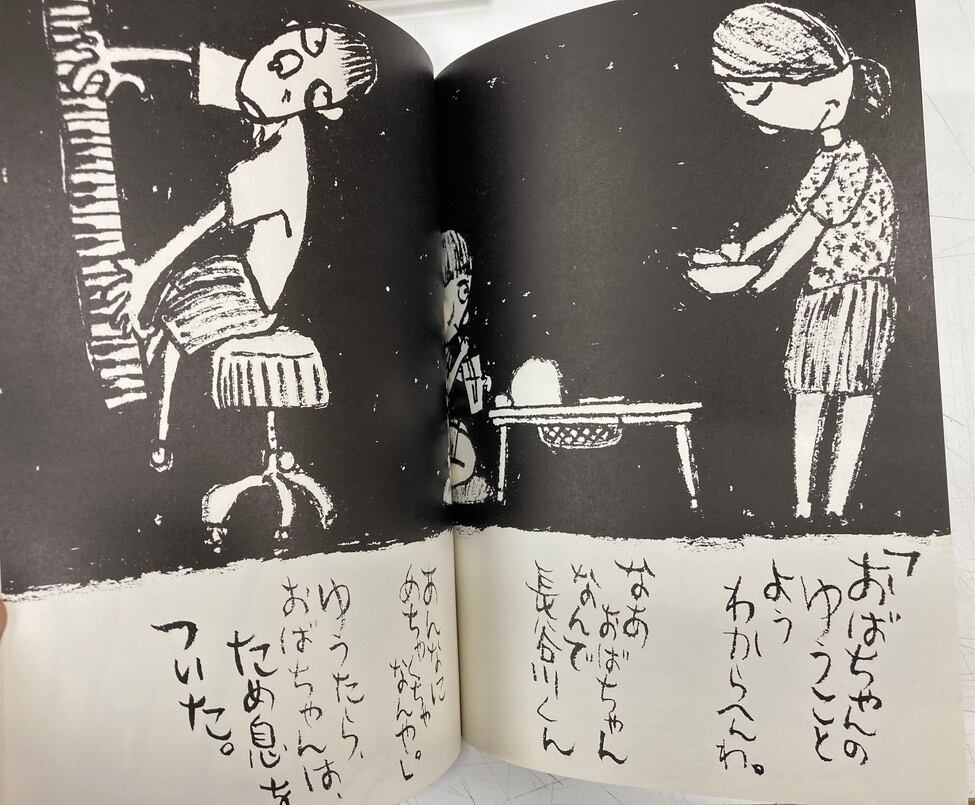 「おばちゃんの
ゆうこと
よう
わからへんわ。
なあ
おばちゃん
なんで
長谷川くん
あんなに
めちゃくちゃ
なんや。」
ゆうたら、
おばちゃんは、
ため息を
ついた。